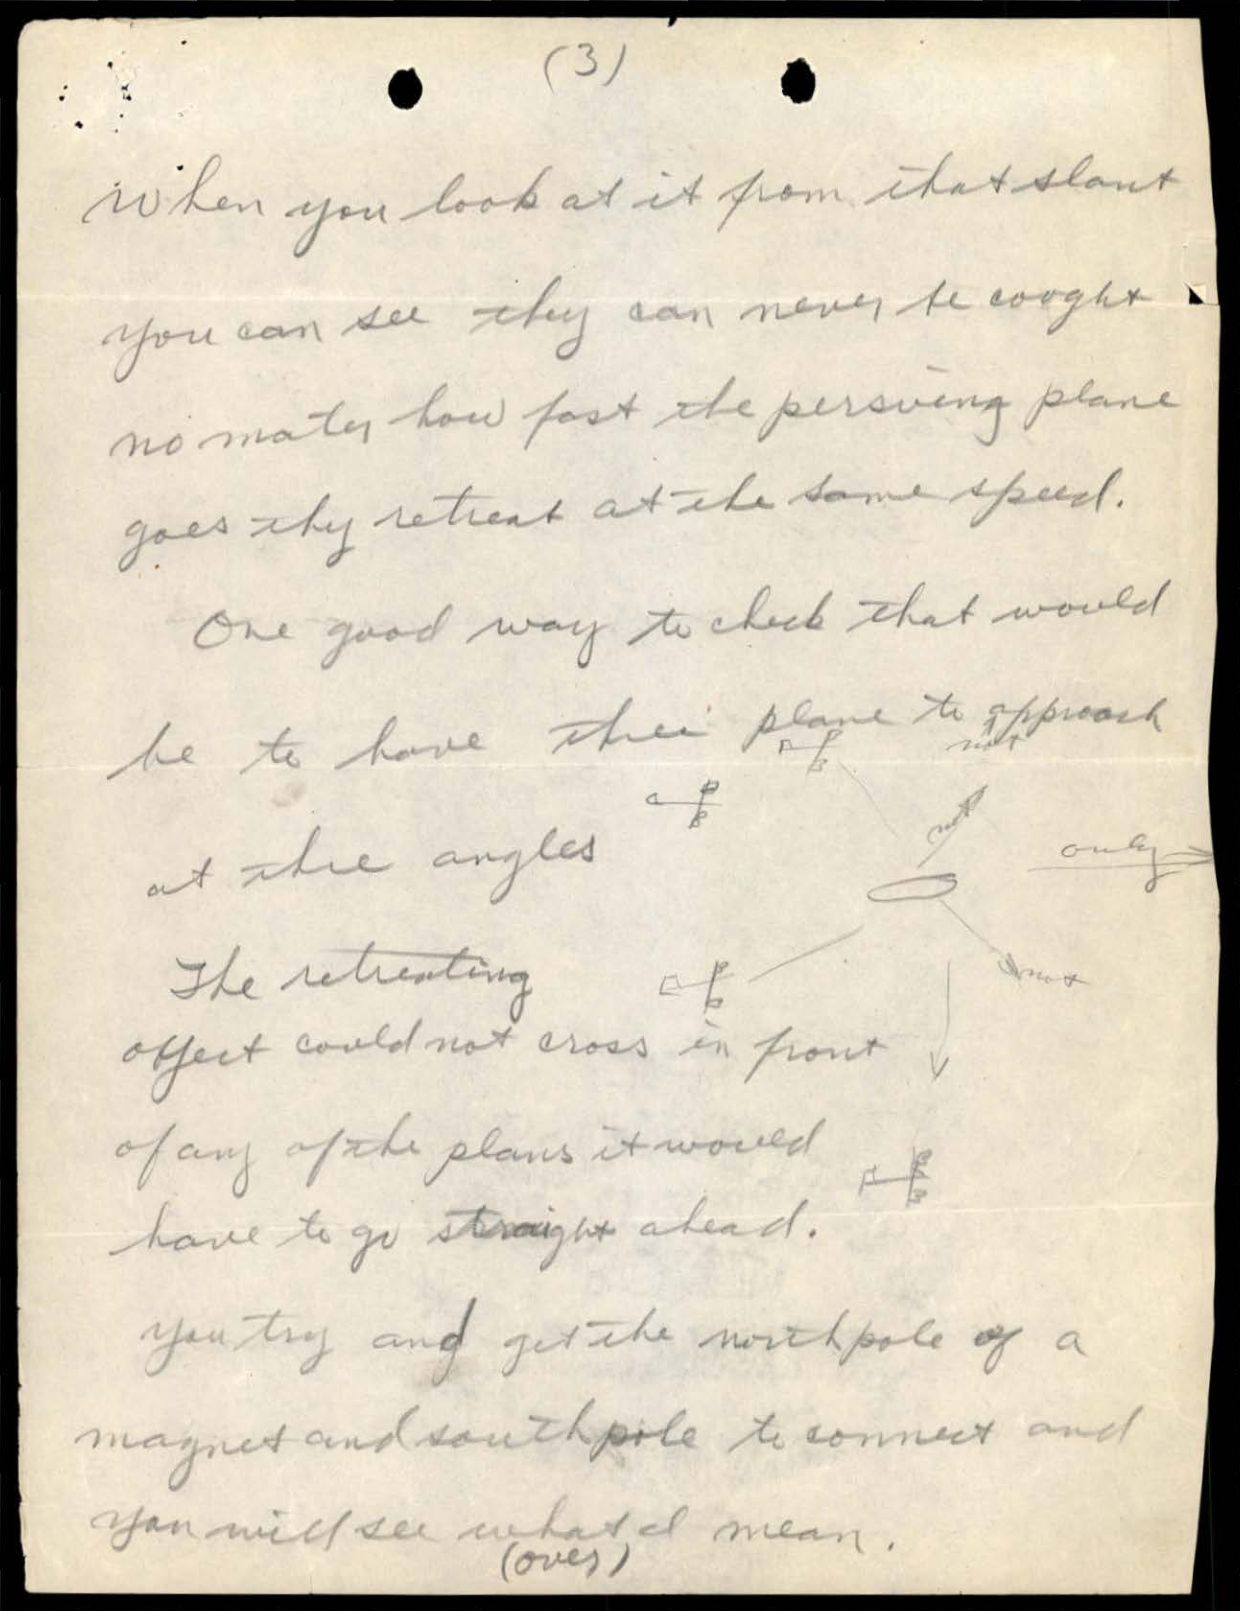 (3)
When you look at it from that slant
you can see they can never be cooght
no mater how fast the persuing plane
goes they retreat at the same speed.
One good way to check that would
be to have three plane to approach
not
at thre angles
not
only
The retreating
not
offect could not cross in front
of any of the plans it would
have to go straight ahead.
you try and get the north pole of a
magnet and south pole to connect and
you will see what I mean.
(over)